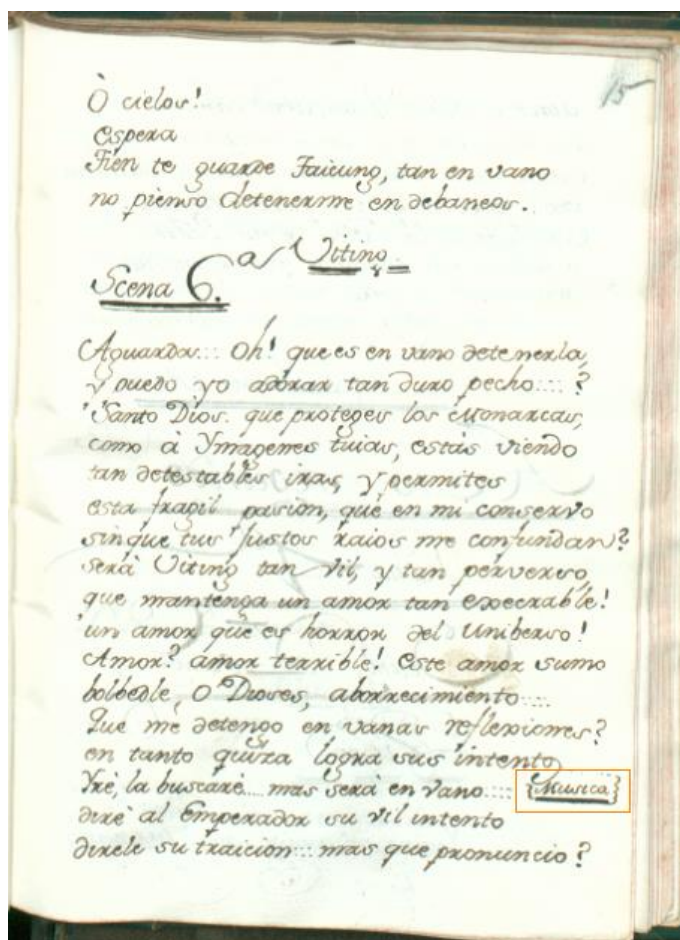 15
Ò cielos!
espera
Tien te guarde Taicung, tan en vano
no pienso detenerme en debaneos.
a Vitino
Scena 6.
Aguarda... Oh! que es en vano detenerla,
y puedo yo adorar tan duro pecho....?
Santo Dios. que proteges los Monarcas,
como à Ymagenes tuias, estàs viendo
tan detestables iras, y permites
esta fragil pasion, que en mi conservo
sin que tus justos raios me confundan?
serà Vitino tan vil, y tan perverso,
que mantenga un amor tan execrable!
un amor que es horror del Uniberso!
Amor? amor terrible! este amor sumo
bolbedle, O Dioses, aborrecimiento....
Que me detengo en vanas reflexiones?
en tanto quiza logra sus intento
Yrè, la buscarè.... mas serà en vano.... {Musica}
dirè al Emperador su vil intento
direle su traicion... mas que pronuncio?